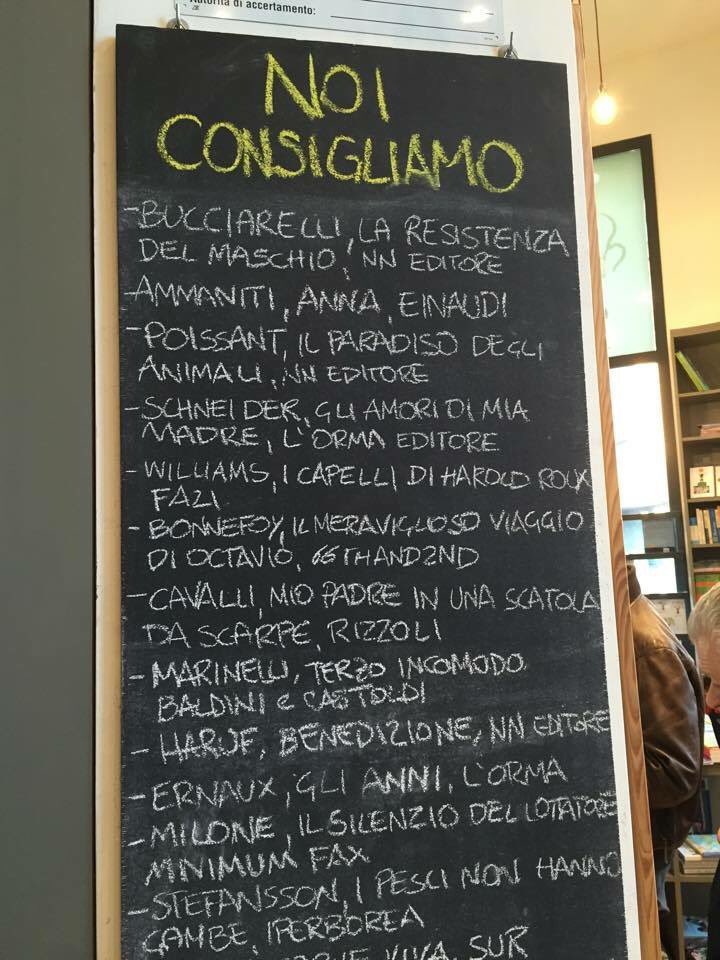 Autorità di accertamento:
NOI
CONSIGLIAMO
-BUCCIARELLI, LA RESISTENZA
DEL MASCHIO, NN EDITORE
-AMMANITI, ANNA, EINAUDI
-POISSANT, IL PARADISO DEGLI
ANIMALI, NN EDITORE
-SCHNEIDER, GLI AMORI DI MIA
MADRE, L'ORMA EDITORE
- WILLIAMS, I CAPELLI DI HAROLD ROUX
FAZI
- BONNEFOY, IL MERAVIGLIOSO VIAGGIO
DI OCTAVIO, 66THAND2ND
- CAVALLI, MIO PADRE IN UNA SCATOLA
DA SCARPE, RIZZOLI
- MARINELLI, TERZO INCOMODO
BALDINI e CASTOLDI
- HARUF, BENEDIZIONE, NN EDITORE
- ERNAUX, GLI ANNI, L'ORMA
- MILONE, IL SILENZIO DEL LOTTATORE
MINIMUM FAX
- STEFANSSON, I PESCI NON HANNO
GAMBE, IPERBOREA
VIVA, SUR